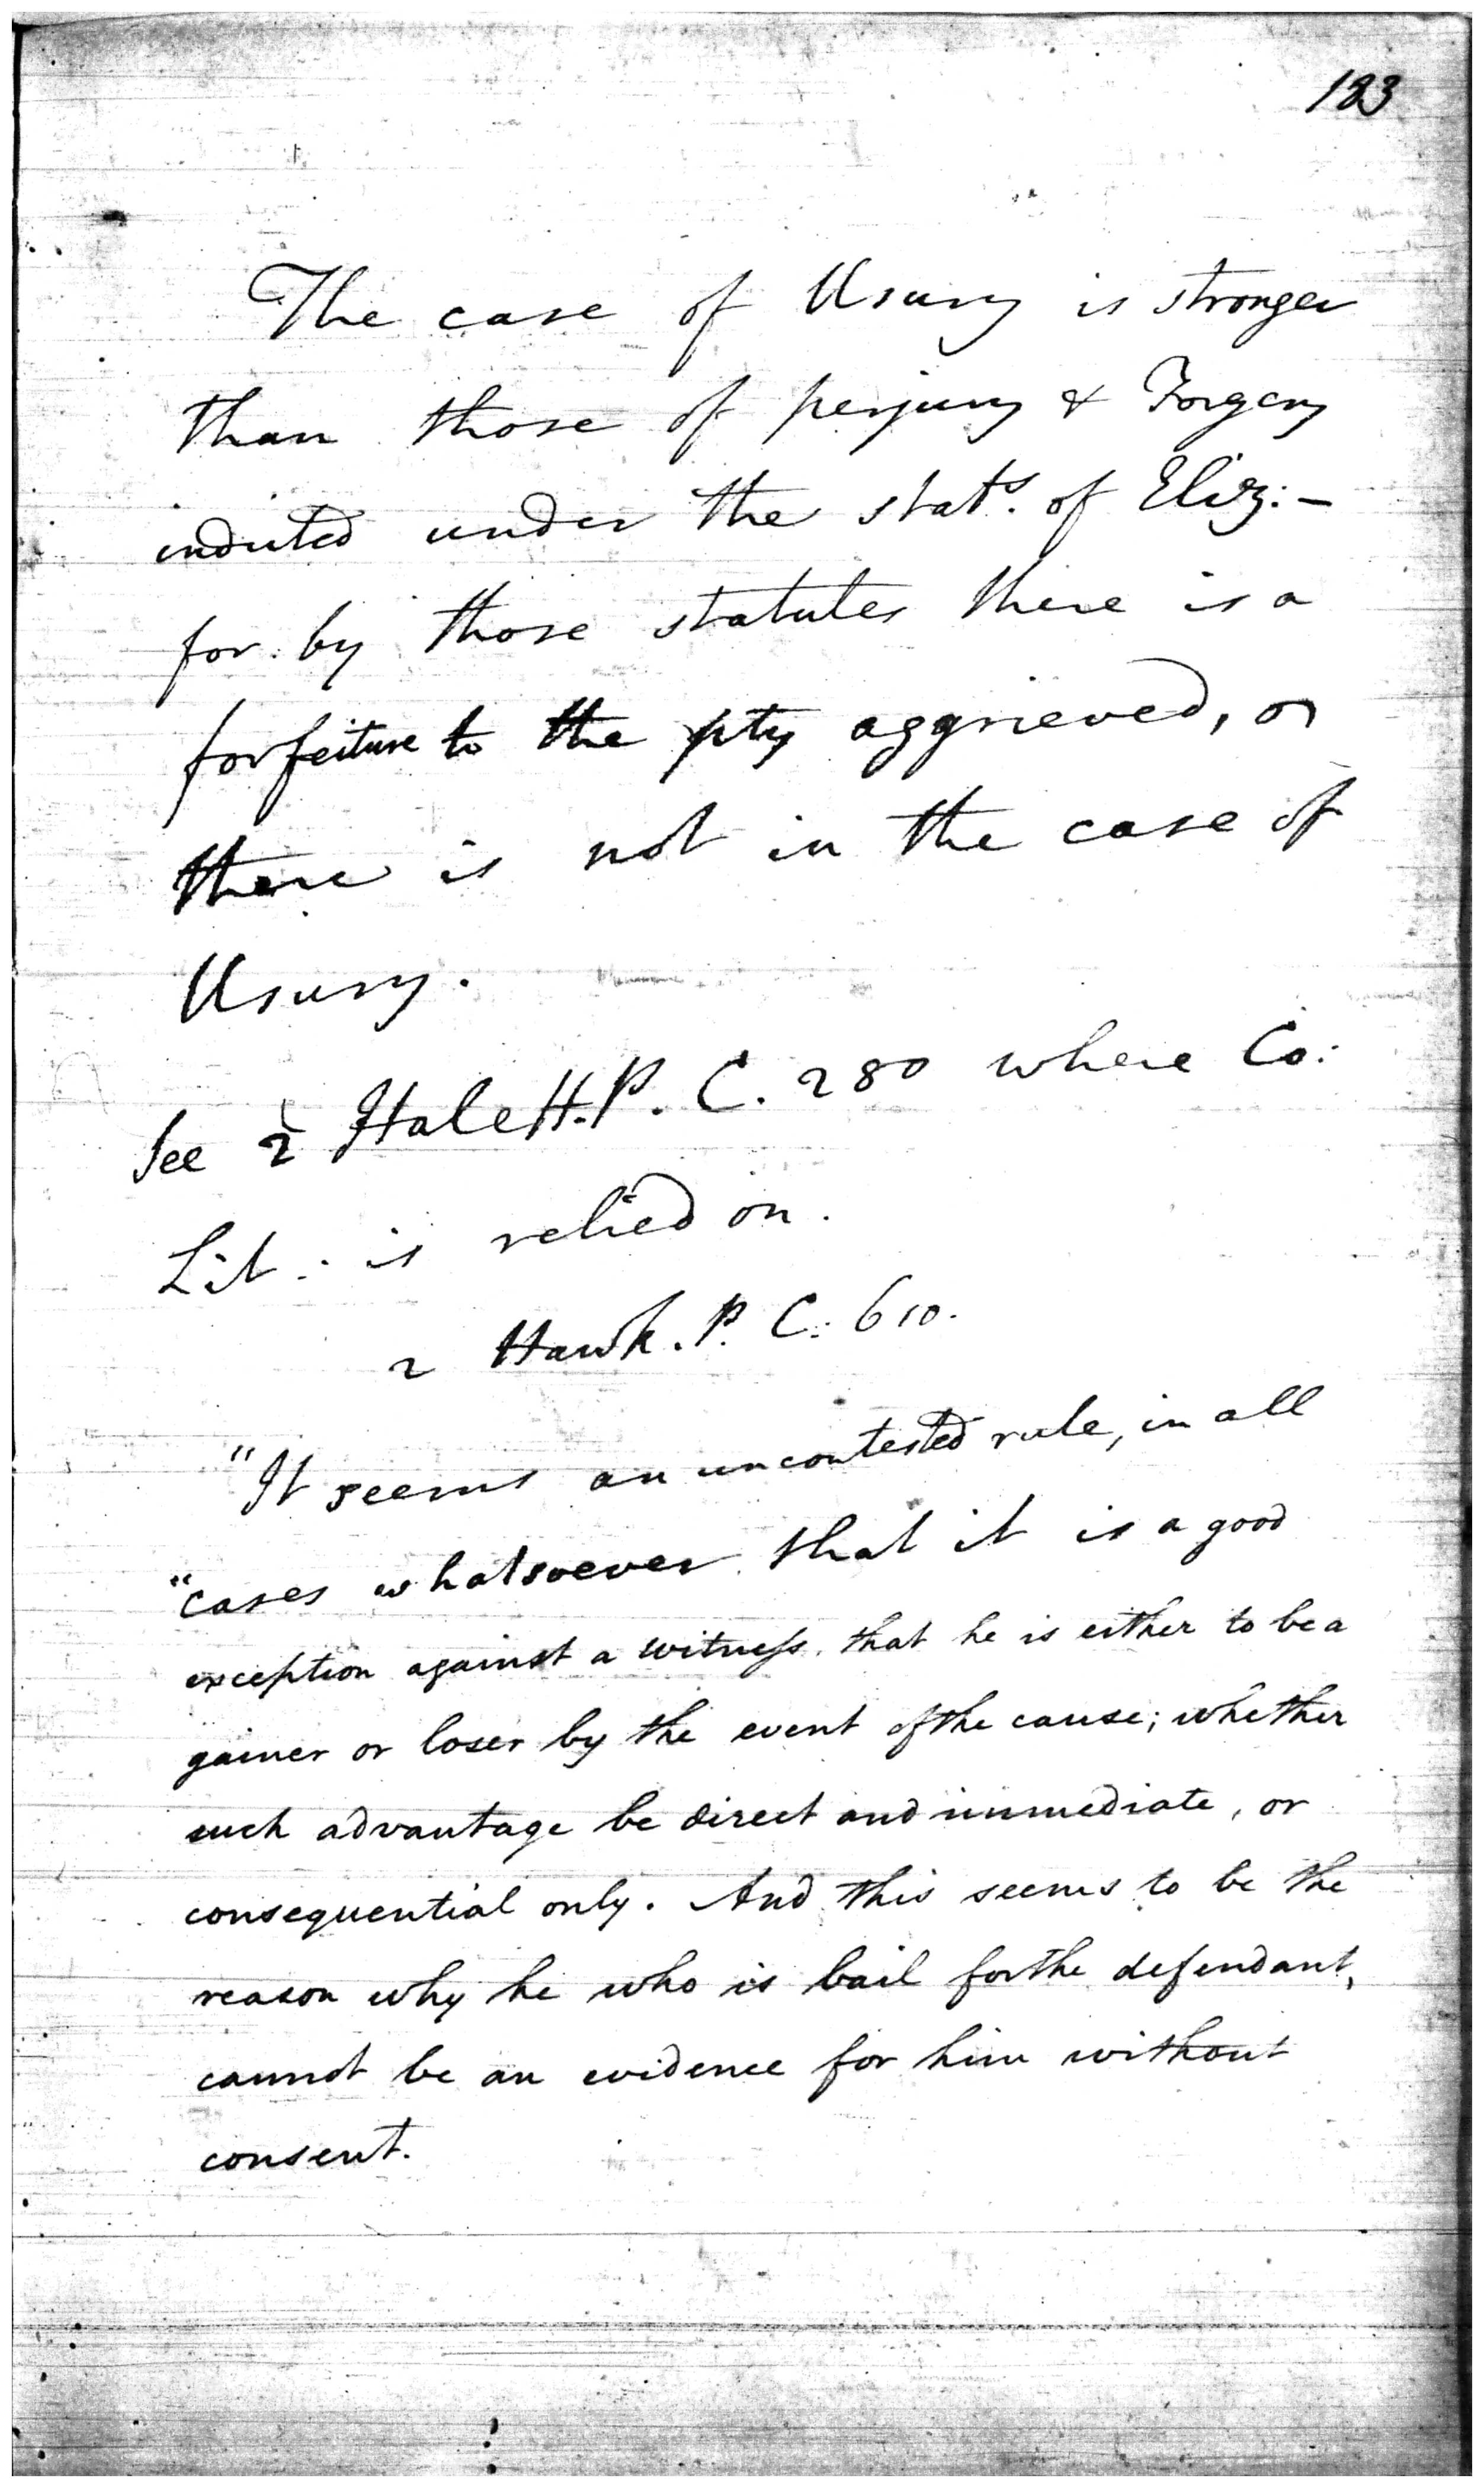 183
The case of Usury is stronger
than those of perjury & Forgery
indicted under the stats. of Eliz:-
for by those statutes there is a
forfeiture to the pty aggrieved, or
there is not in the case of
Usury.
See 2 Hale H.P.C. 280 where Co:
Lit: is relied on.
2 Hawk. P. C: 610.
"It seems an uncontested rule, in all
"cases whatsoever that it is a good
exception against a witness, that he is either to be a
gainer or loser by the event of the cause; whether
such advantage be direct and immediate, or
consequential only. And this seems to be the
reason why he who is bail for the defendant,
cannot be an evidence for him without
consent.